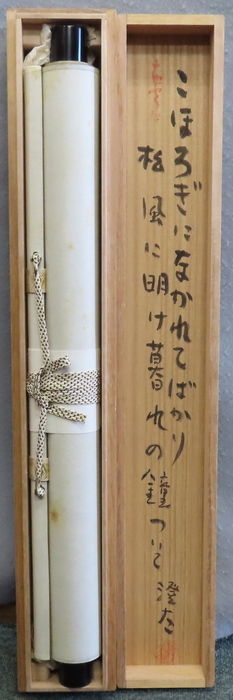 こほろぎになかれてばかり
松風に明け暮れの鐘ついて 澄太